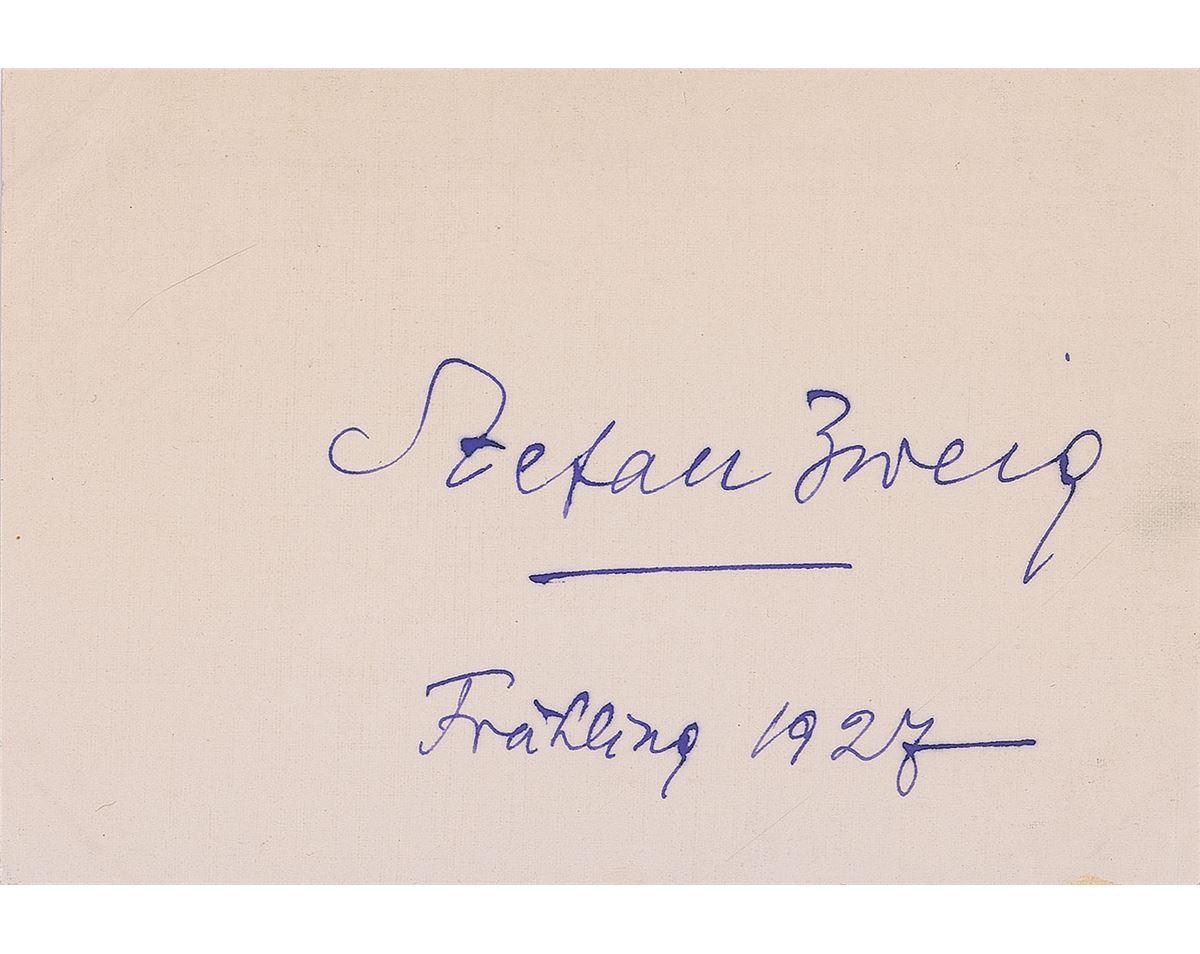 Stefan Zweig
Frühling 1927